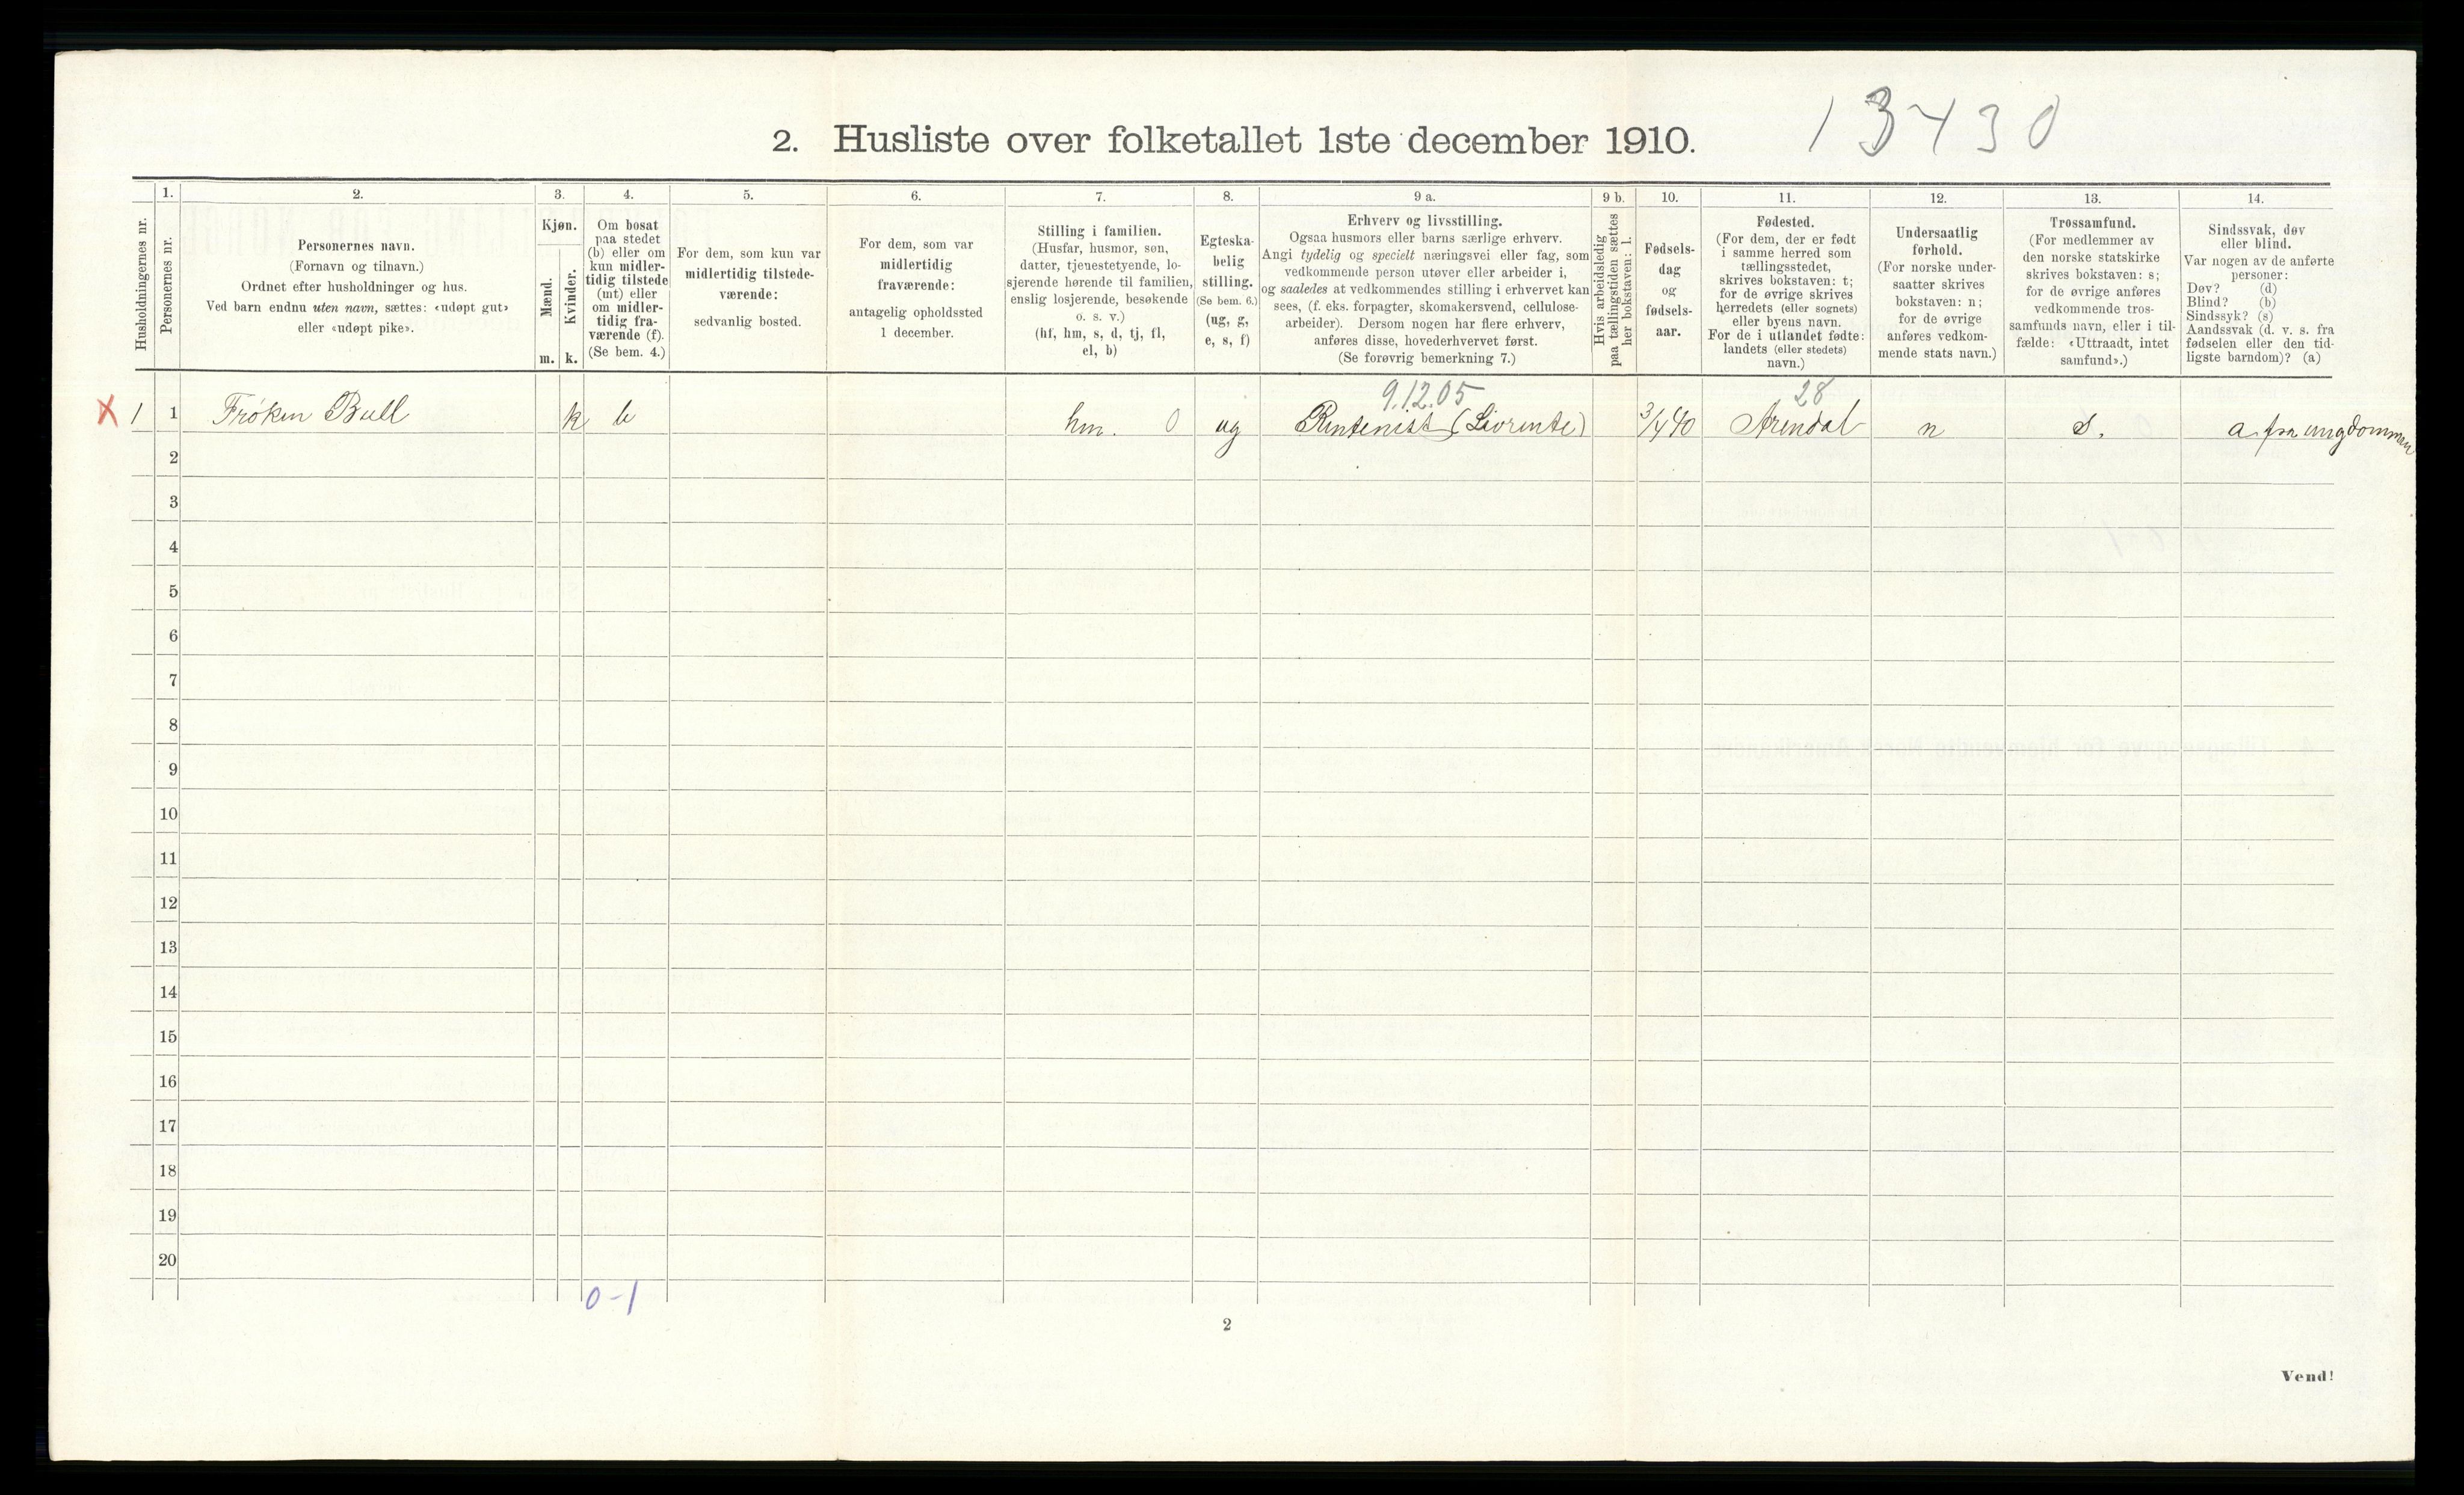 2. Husliste over folketallet 1ste december 1910.
13430
Husholdningernes nr.
1.
Personernes nr.
2.
Personernes navn.
(Fornavn og tilnavn.)
Ordnet efter husholdninger og hus.
Ved barn endnu uten navn, sættes: «udøpt gut»
eller «udøpt pike».
3.
Kjøn.
Mænd.
Kvinder.
m. k.
4.
Om bosat
paa stedet
(b) eller om
kun midler-
tidig tilstede
(mt) eller
om midler-
tidig fra-
værende (f).
(Se bem. 4.)
5.
For dem, som kun var
midlertidig tilstede-
værende:
sedvanlig bosted.
6.
For dem, som var
midlertidig
fraværende:
antagelig opholdssted
1 december.
7.
Stilling i familien.
(Husfar, husmor, søn,
datter, tjenestetyende, lo-
sjerende hørende til familien,
enslig losjerende, besøkende
o. s. v.)
(hf, hm, s, d, tj, fl,
el, b)
8.
Egteska-
belig
stilling.
(Se bem. 6.)
(ug, g,
e, s, f)
9 a.
Erhverv og livsstilling.
Ogsaa husmors eller barns særlige erhverv.
Angi tydelig og specielt næringsvei eller fag, som
vedkommende person utøver eller arbeider i,
og saaledes at vedkommendes stilling i erhvervet kan
sees, (f. eks. forpagter, skomakersvend, cellulose-
arbeider). Dersom nogen har flere erhverv,
anføres disse, hovederhvervet først.
(Se forøvrig bemerkning 7.)
9 b.
Hvis arbeidsledig
paa tællingstiden sættes
her bokstaven: l.
10.
Fødsels-
dag
og
fødsels-
aar.
11.
Fødested.
(For dem, der er født
i samme herred som
tællingsstedet,
skrives bokstaven: t;
for de øvrige skrives
herredets (eller sognets)
eller byens navn.
For de i utlandet fødte:
landets (eller stedets)
navn.)
12.
Undersaatlig
forhold.
(For norske under-
saatter skrives
bokstaven: n;
for de øvrige
anføres vedkom-
mende stats navn.)
13.
Trossamfund.
(For medlemmer av
den norske statskirke
skrives bokstaven: s;
for de øvrige anføres
vedkommende tros-
samfunds navn, eller i til-
fælde: «Uttraadt, intet
samfund».)
14.
Sindssvak, døv
eller blind.
Var nogen av de anførte
personer:
Døv? (d)
Blind? (b)
Sindssyk? (s)
Aandssvak (d. v. s. fra
fødselen eller den tid-
ligste barndom)? (a)
9.12.05 28
X 1 1 Frøken Bull k b hm. 0 ug Rentenist (Livrente) 3/4 40 Arendal n s. a fra ungdommen
2
3
4
5
6
7
8
9
10
11
12
13
14
15
16
17
18
19
20
0-1
2
Vend!